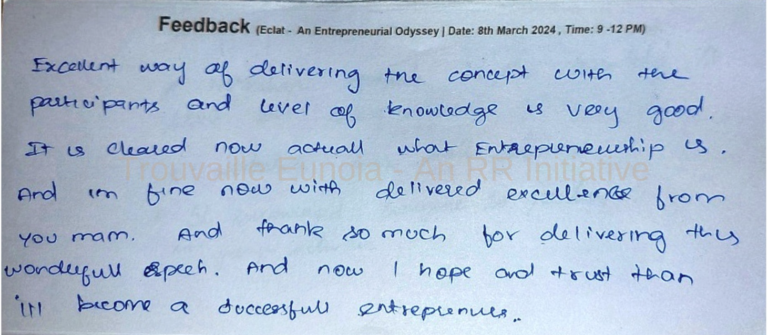 Feedback (Eclat - An Entrepreneurial Odyssey | Date: 8th March 2024, Time: 9 -12 PM)
Excellent way of delivering the concept with the
participants and level of knowledge is very good.
It is cleared now actuall what Entrepreneuship is.
Trouvaille Eunoia - An RR Initiative
And im fine now with delivered excellence from
you mam. And thank so much for delivering this
wonderfull speech. And now I hope and trust than
i'll become a successfull entreprenues.